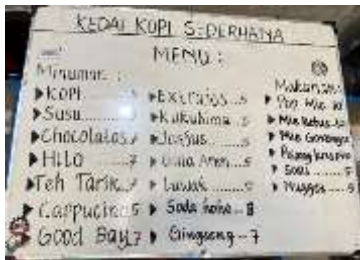 KEDAI KOPI SEDERHANA
MENU :
Minuman :
KOPI
Susu
Chocolatos 7
Hilo 7
Teh Tarik
Cappucino 5
Good Day 7
Extrajos 5
Kukubima 5
JosJus
Gula Aren
Luwak 5
Soda 8
Gingseng 7
Makanan :
Pop Mie
Mie Rebus
Mie Goreng
Pisang
Sosis 5
Nugget